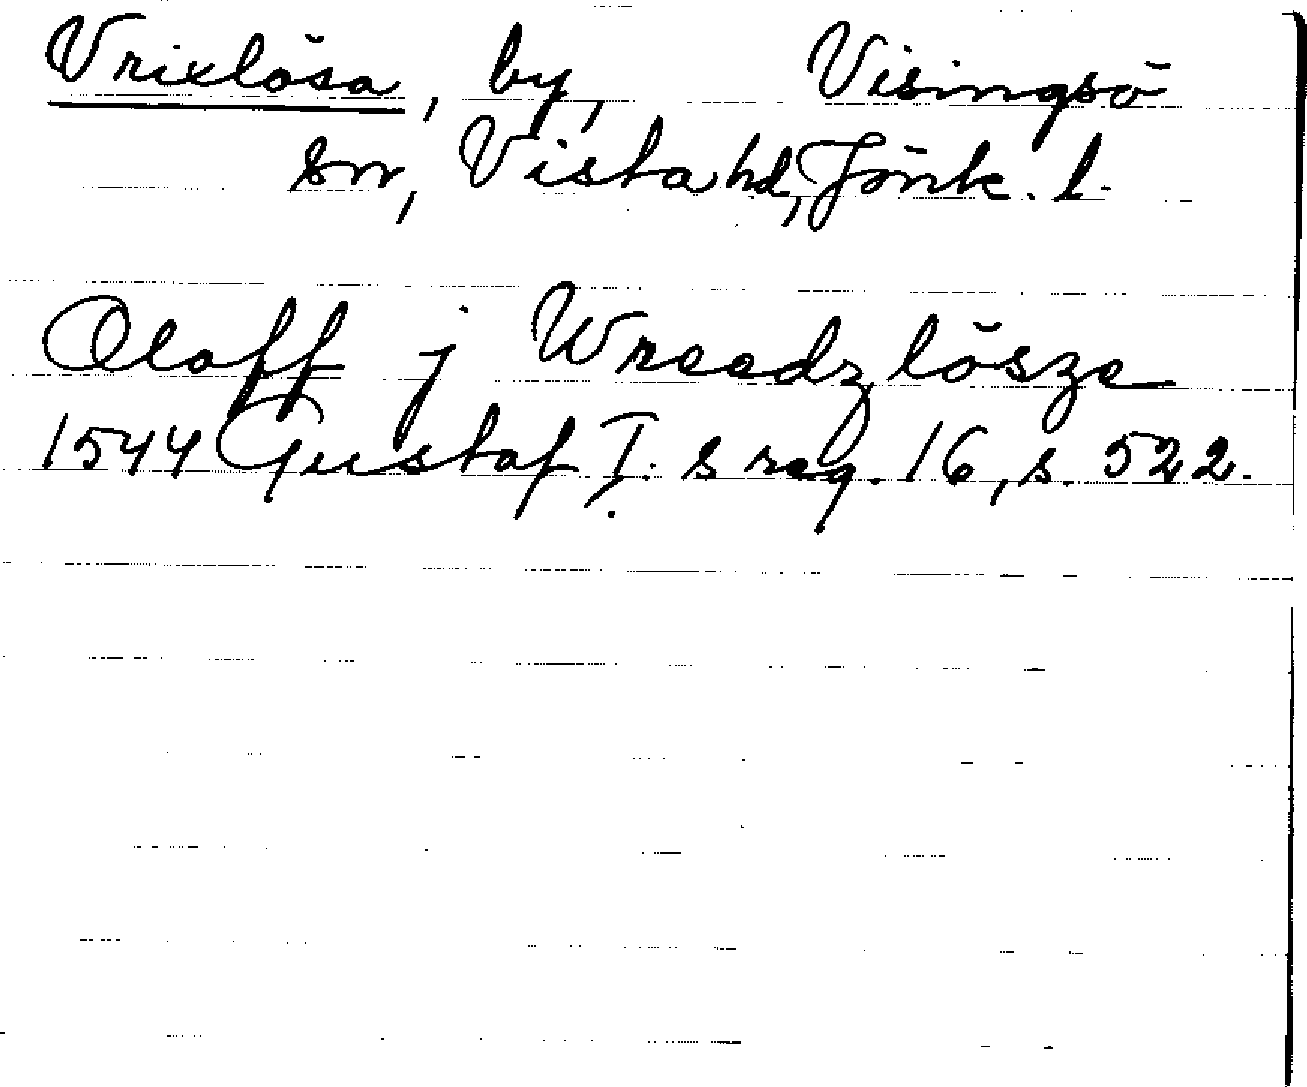 Vrixlösa, by, Visingsö
sn, Vista hd, Jönk. l.
Oloff j Wreedzlösze
1544 Gustaf I:s reg. 16, s. 522.